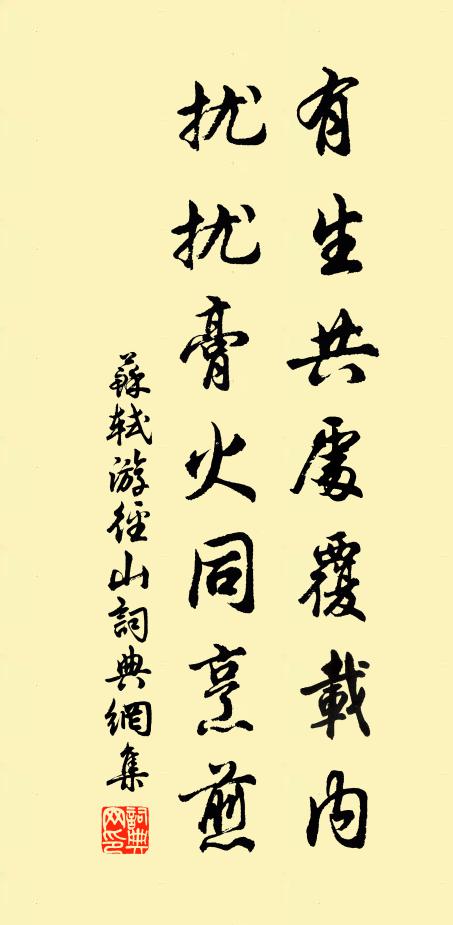 有生共處覆載內
扰扰膏火同烹煎
蘇軾游徑山詞典網集
詞典網印